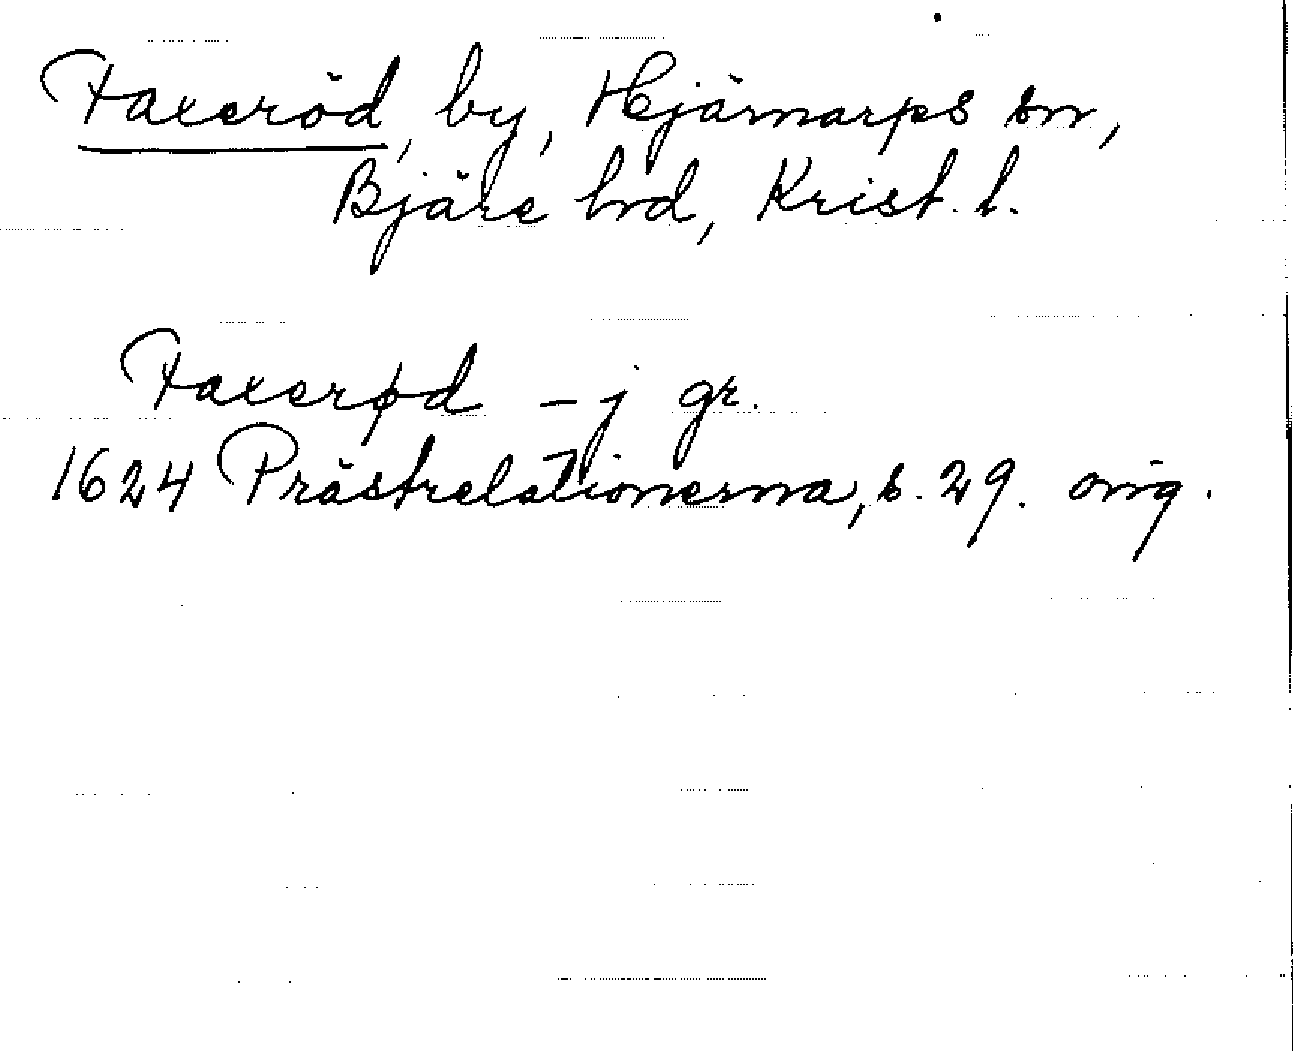 Faxeröd, by, Hjärnarps sn,
Bjäre hrd, Krist. l.
Faxerød – j gr.
1624 Prästrelationerna, s. 29. orig.